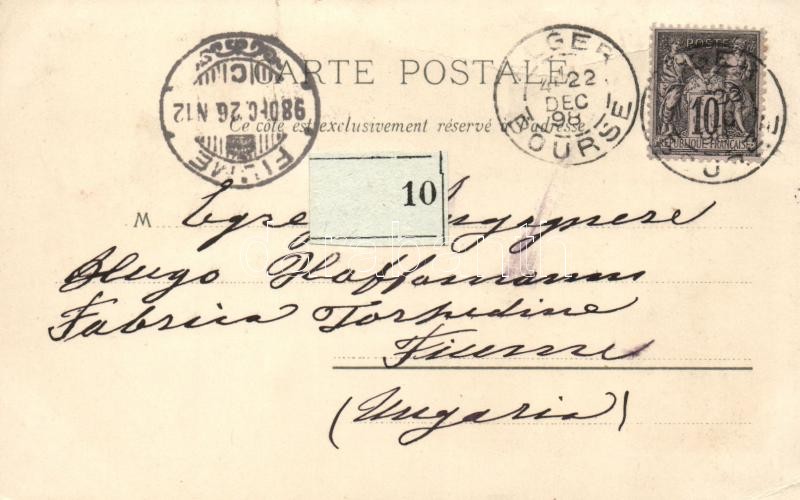 CARTE POSTALE
Ce côté est exclusivement réservé à l'adresse.
ALGER
22
DEC
98
BOURSE
POSTES
10
REPUBLIQUE FRANÇAISE
FIUME
10
M
Hugo Hoffmann
Fabrica Torpedine
Fiume
(Ungaria)